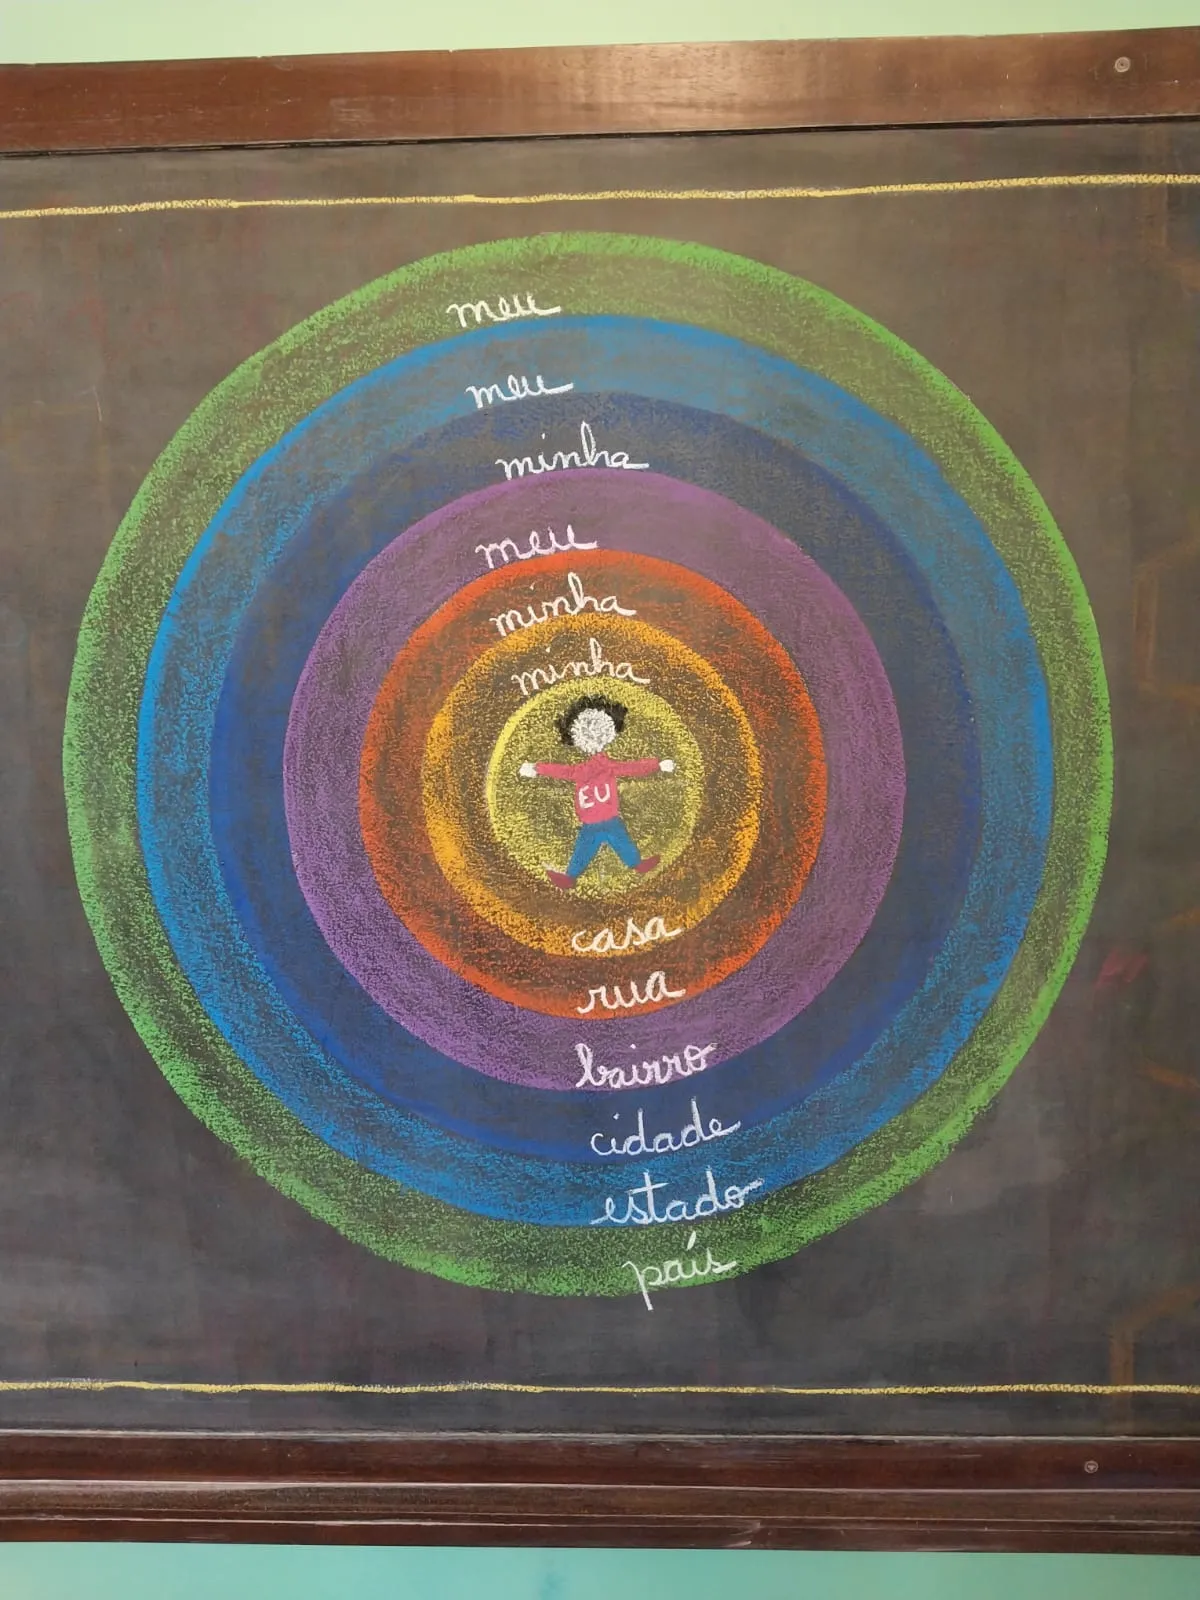 meu
meu
minha
meu
minha
minha
EU
casa
rua
bairro
cidade
estado
país